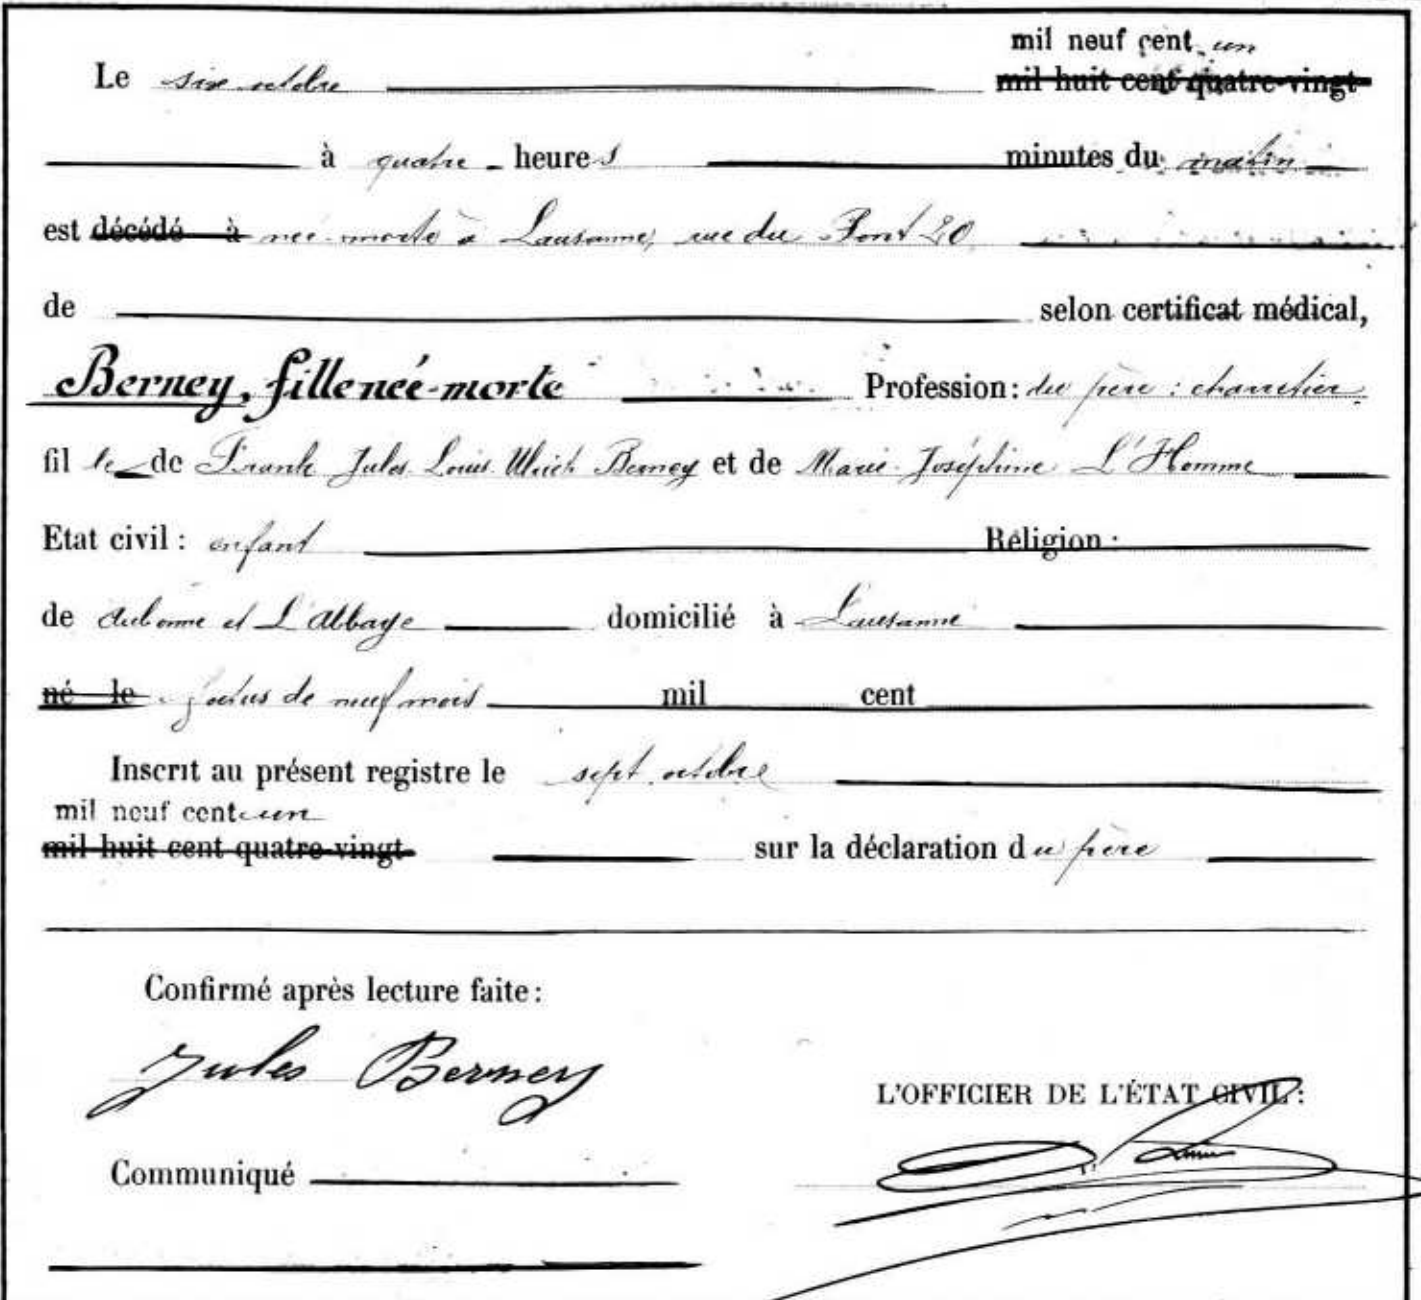 mil neuf cent un
Le six octobre mil huit cent quatre-vingt
à quatre heures minutes du matin
est décédé à née-morte à Lausanne, rue du Pont 20
de selon certificat médical,
Berney, fille née-morte Profession: du père: charretier
fille de Frank Jules Louis Ulrich Berney et de Marie Joséphine L'Homme
Etat civil: enfant Réligion:
de Aubonne et L'Abbaye domicilié à Lausanne
né le foetus de neuf mois mil cent
Inscrit au présent registre le sept octobre
mil neuf cent un
mil huit cent quatre-vingt sur la déclaration du père
Confirmé après lecture faite:
Jules Berney
L'OFFICIER DE L'ÉTAT CIVIL:
Communiqué